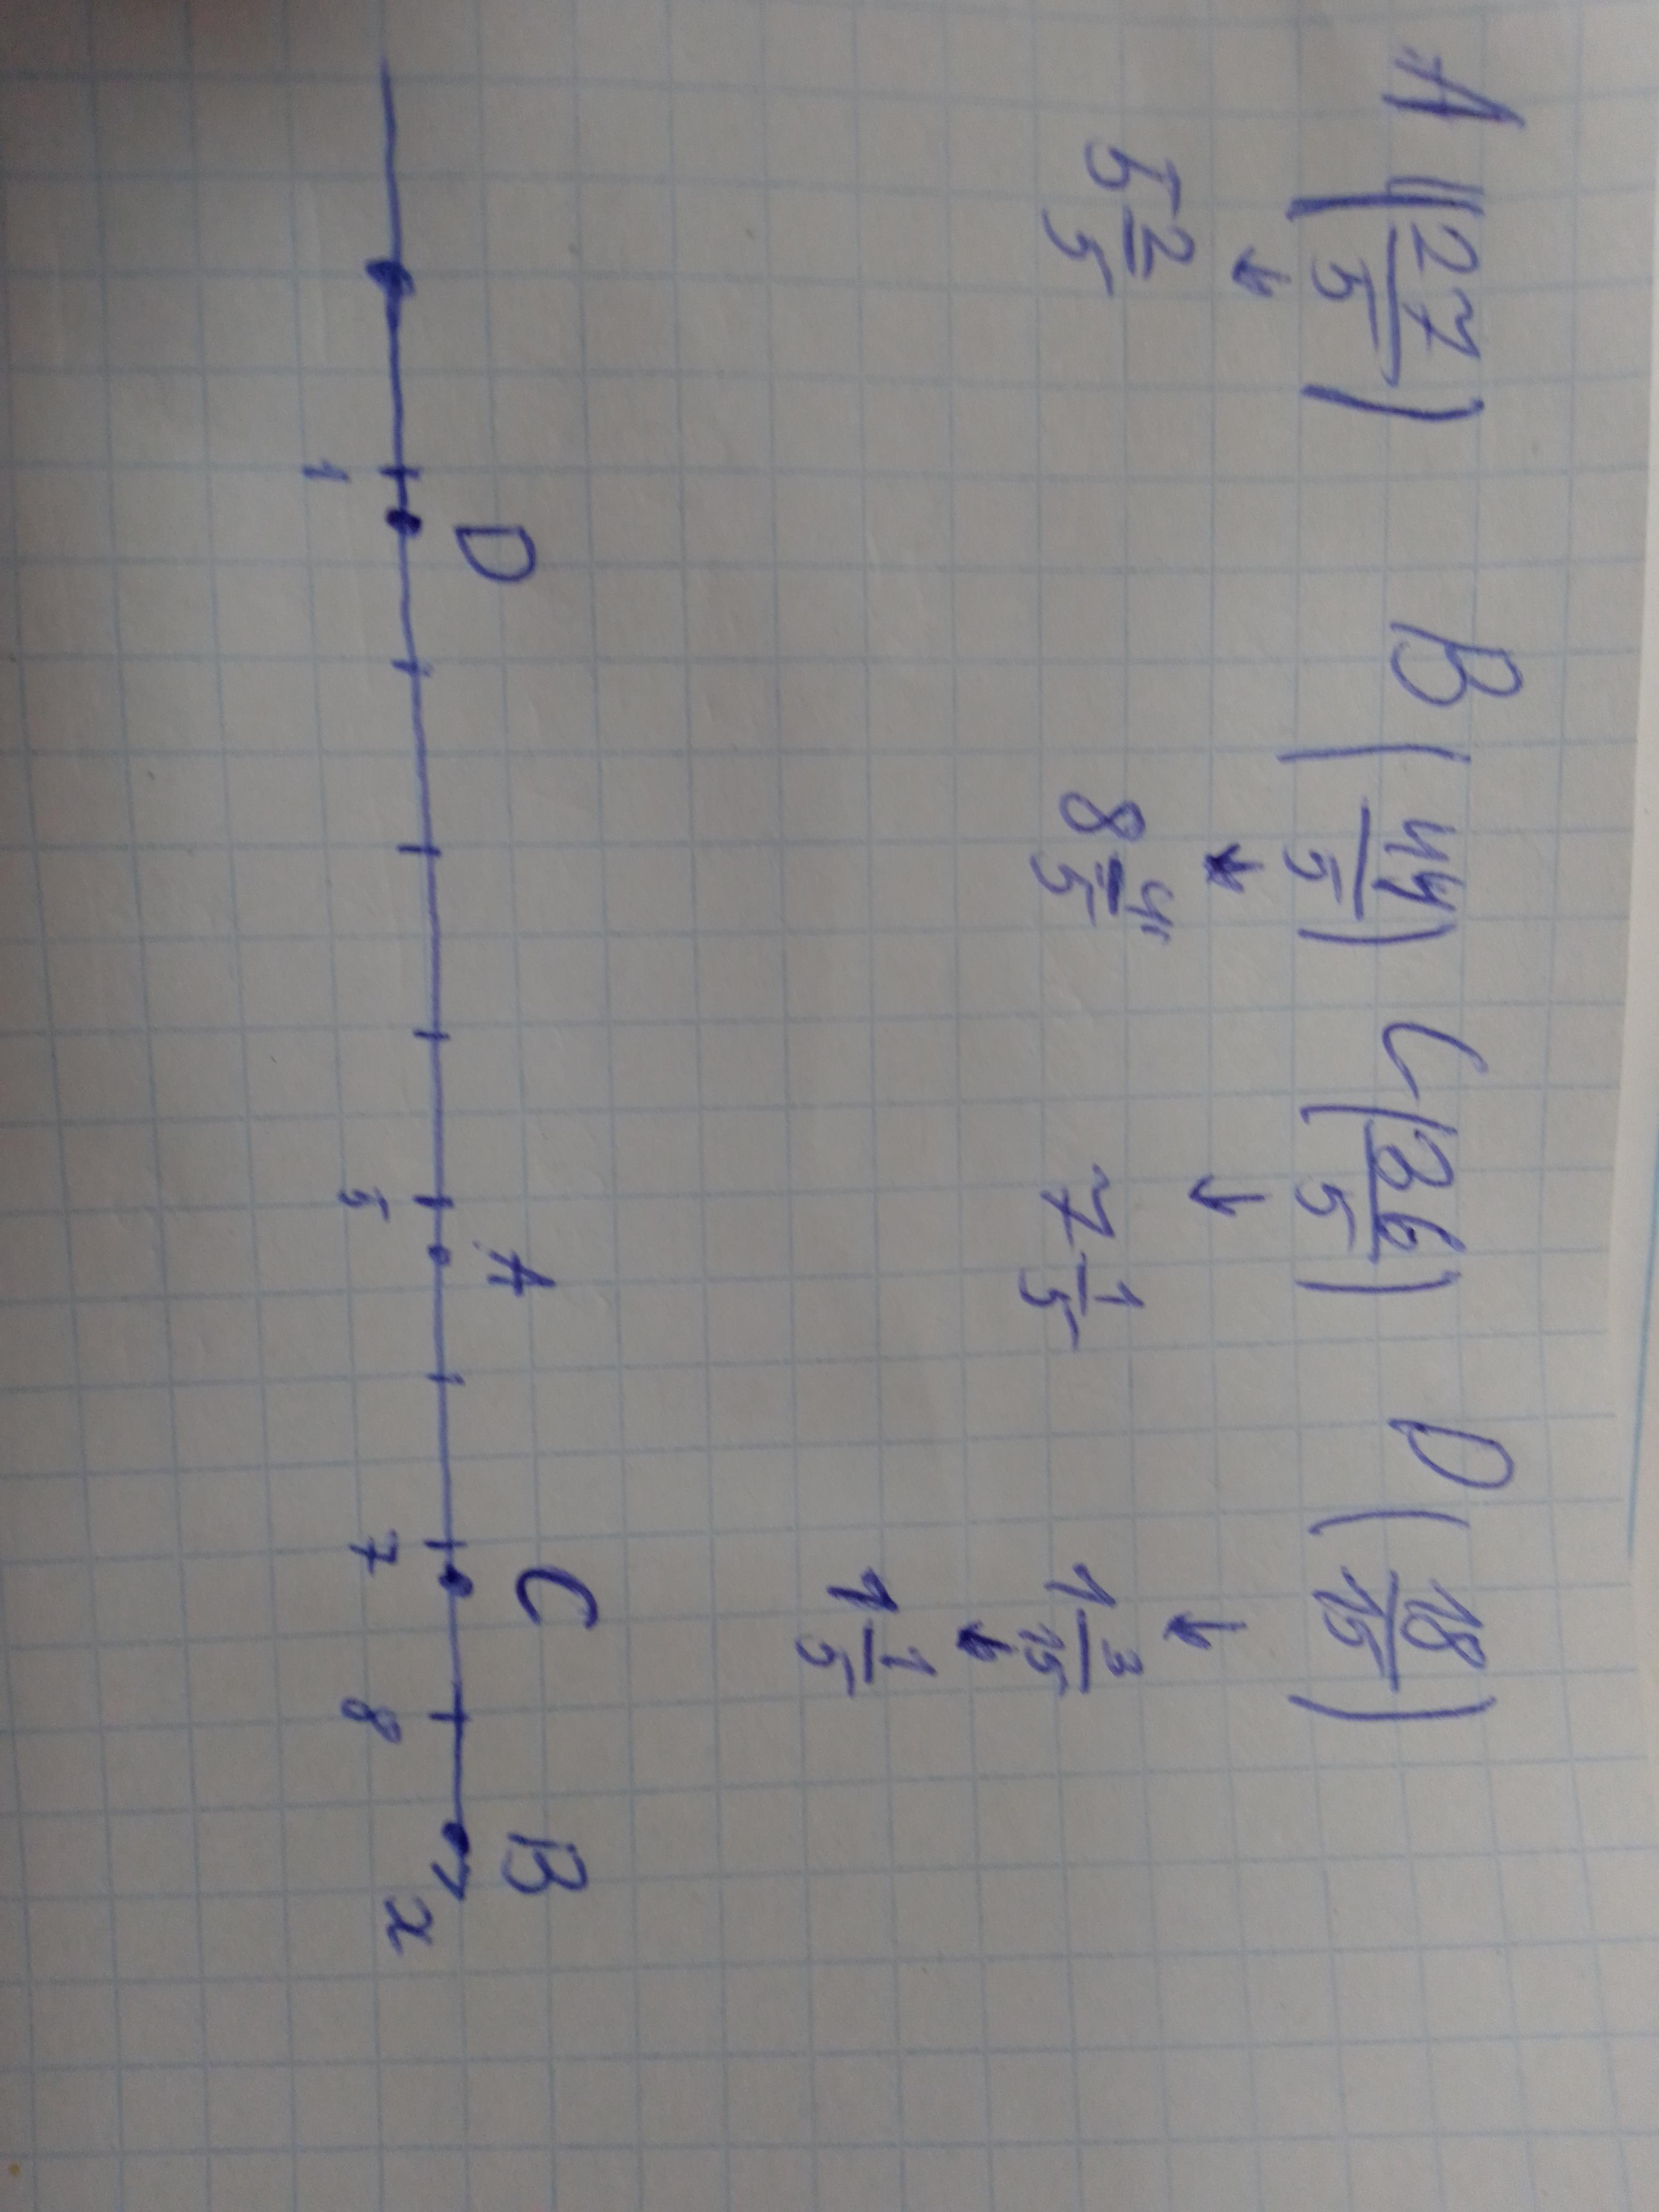 A (27/5) B (44/5) C (36/5) D (18/15)
↓ ↓ ↓ ↓
5 2/5 8 4/5 7 1/5 1 3/15
↓
1 1/5
D A C B
1 5 7 8 x